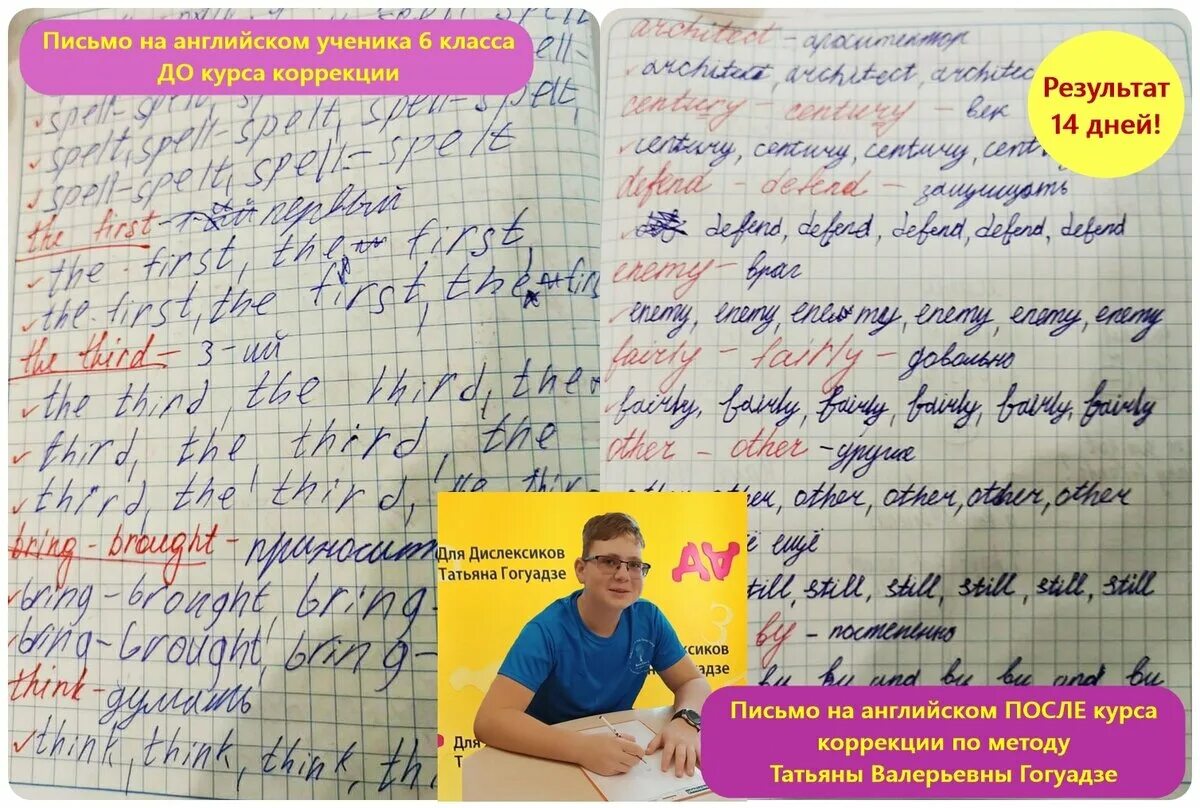 Письмо на английском ученика 6 класса
ДО курса коррекции
spell-spelt, spell-spelt,
spelt, spell-spelt, spell-spelt,
spell-spelt, spell-spelt
the first - первый
the first, the first,
the first, the first, the firs
the third - 3-ий
the third, the third, the
third, the third, the
third, the third, the third
bring - brought - приносит
bring-brought, bring-
bring-brought, bring-
think - думать
think, think, think, thi
architect - архитектор
architect, architect, architec
century - century - век
century, century, century, cent
defend - defend - защищать
defend, defend, defend, defend, defend
enemy - враг
enemy, enemy, enemy, enemy, enemy, enemy
fairly - fairly - довольно
fairly, fairly, fairly, fairly, fairly, fairly
other - other - другие
other, other, other, other, other
ещё
still, still, still, still, still
by - постепенно
by by and by by and by
Результат
14 дней!
Для Дислексиков
Татьяна Гогуадзе
Письмо на английском ПОСЛЕ курса
коррекции по методу
Татьяны Валерьевны Гогуадзе